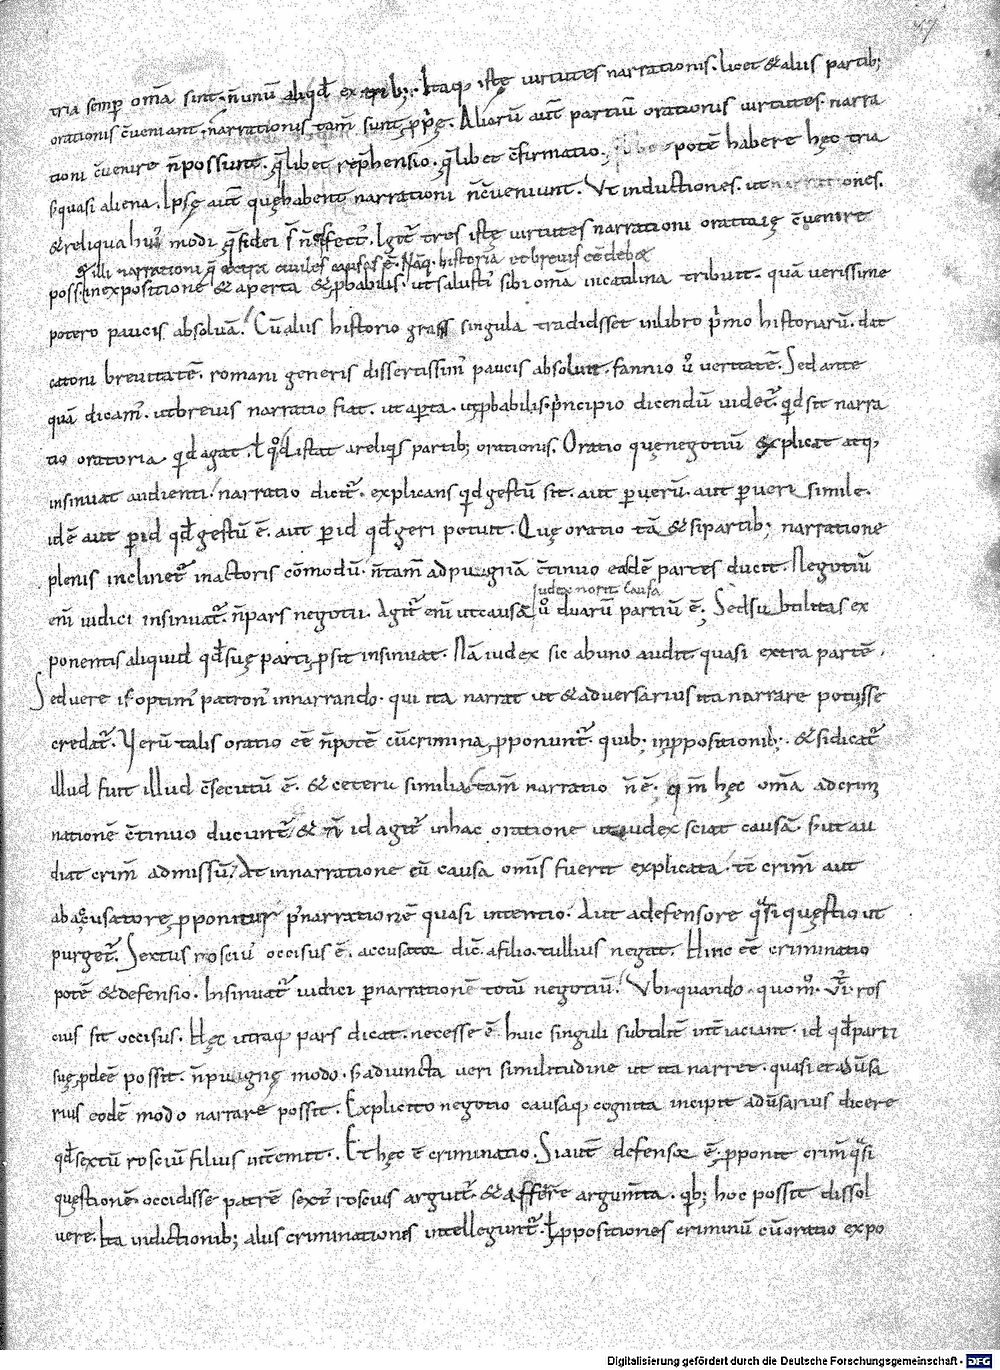 77
tria semp om̅a sint, n̅ unū aliqd̅ ex trib; Itaq; istę uirtutes narrationis. licet & aliis partib;
orationis c̅ueniant, narrationis tam̅ sunt p̱p̱ę. Aliarū aut̅ partiū orationis uirtutes narra
tioni c̅uenire n̅ possunt. q̅libet rep̅hensio. q̅libet c̅firmatio, potē habere hęc tria
s; quasi aliena. Ipsę aut̅ quę habent narrationi n̅ c̅ueniunt. Ut inductiones. ut ones.
& reliqua hui᾽ modi q̅ fidei s̅ n̅ effect᾽. Igit̅ tres istę uirtutes narrationi oratorię c̅uenire
& illi narrationi q̅ extra ciuiles causas ē. Nāq; historia et breuis eē debet
poss. in expositione & aperta & p̱babilis. ut salusti᾽ sibi om̅a in catilina tribuit. quā uerissime
potero paucis absoluā. Cū aliis historio grafis singula tradidisset in libro p᾽mo historiarū. dat
catoni breuitatē. romani generis dissertissim᾽ paucis absoluit. fannio u᾽ ueritatē. Sed ante
quā dicam᾽. ut breuis narratio fiat. ut ap̱ta. ut p̱babilis. p᾽ncipio dicendū uidet᾽. qd̅ sit narra
tio oratoria. qd̅ agat. ł qd̅ distat a reliqs partib; orationis. Oratio quę negotiū explicat atq;
insinuat audienti, narratio dicit᾽. explicans qd̅ gestū sit. aut p̱ uerū. aut p̱ ueri simile.
idē aut p̱ id qd̅ gestū ē. aut p̱ id qd̅ geri potuit. Quę oratio tā & si partib; narratione
plenis inclinet᾽ in actoris cōmodū. n̅ tam̅ ad pugnā c̅tinuo eadē partes ducit. Negotiū
iudex norit causa
eni̅ iudici insinuat᾽. n̅ pars negotii. Agit᾽ eni̅ ut causā u᾽ duarū partiū ē. Sed subtilitas ex
ponentis aliquid qd̅ suę parti p̱sit insinuat. Nā iudex sic ab uno audit quasi extra partē.
Sed uere is optim᾽ patron᾽ in narrando. qui ita narrat ut & aduersarius ita narrare potuisse
credat᾽. Uerū talis oratio eē n̅ potē cū crimina p̱ponunt᾽. quib; in p̱positionib; & si dicat᾽
illud fuit illud c̅secutū ē. & cetera similia, tam̅ narratio n̅ ē. qm̅ hęc om̅a ad crim
nationē c̅tinuo ducunt᾽, & n̅ id agit᾽ in hac oratione ut iudex sciat causā. s; ut au
diat crim̅ admissū. At in narratione cū causa om̅is fuerit explicata, tc̅ crim̅ aut
ab accusatore p̱ponitur p᾽ narrationē quasi intentio. Aut a defensore qsi quęstio ut
purget᾽. Sextus rosciu᾽ occisus ē. accusator dic̅. a filio. tullius negat. Hinc eē criminatio
potē & defensio. Insinuat᾽ iudici p̱ narrationē totū negotiū. Ubi. quando. quom᾽. ros
cius sit occisus. Hęc utraq; pars dicat. necesse ē. huic singuli subtilit̅ int̅iaciant. id qd̅ parti
suę p̱deē possit. n̅ pugnę modo. s; adiuncta ueri similitudine ut ita narret. quasi et adu̅sa
rius eodē modo narrare possit. Explicito negotio causaq; cognita incipit adu̅sarius dicere
qd̅ sextū rosciū filius int̅emit. Et hęc ē criminatio. Si aut̅ defensor ē, p̱ponit crim̅ qsi
quęstionē. occidisse patrē sext᾽ roscius arguit᾽. & afferre argum̅ta. qb; hoc possit dissol
uere. Ita in dictionib; aliis criminationes intelleguntur᾽. s; p̱positiones criminū cū oratio expo
Digitalisierung gefördert durch die Deutsche Forschungsgemeinschaft - DFG